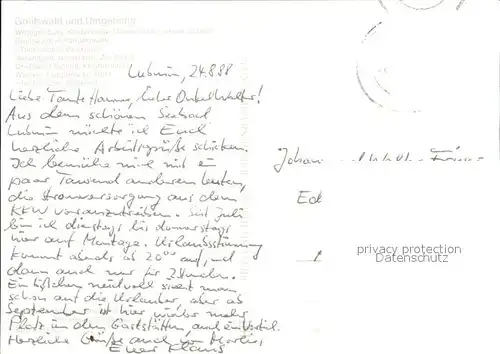 Greifswald und Umgebung
Lubmin, 24.8.88
Liebe Tante Hanna, lieber Onkel Walter!
Aus dem schönen Seebad
Lubmin möchte ich Euch
herzliche Arbeitsgrüße schicken.
Ich bemühe mich mit ein
paar Tausend anderen Leuten,
die Stromversorgung aus dem
KKW voranzutreiben. Seit Juli
bin ich dienstags bis donnerstags
hier auf Montage. Urlaubsstimmung
kommt abends ab 20⁰⁰ auf, und
dann auch nur für 2 Stunden.
Ein bißchen neidvoll sieht man
schon auf die Urlauber, aber ab
September ist hier wieder mehr
Platz in den Gaststätten, auch ein Vorteil.
Herzliche Grüße auch von
Euer Klaus
Johan
Ed
privacy protection
Datenschutz